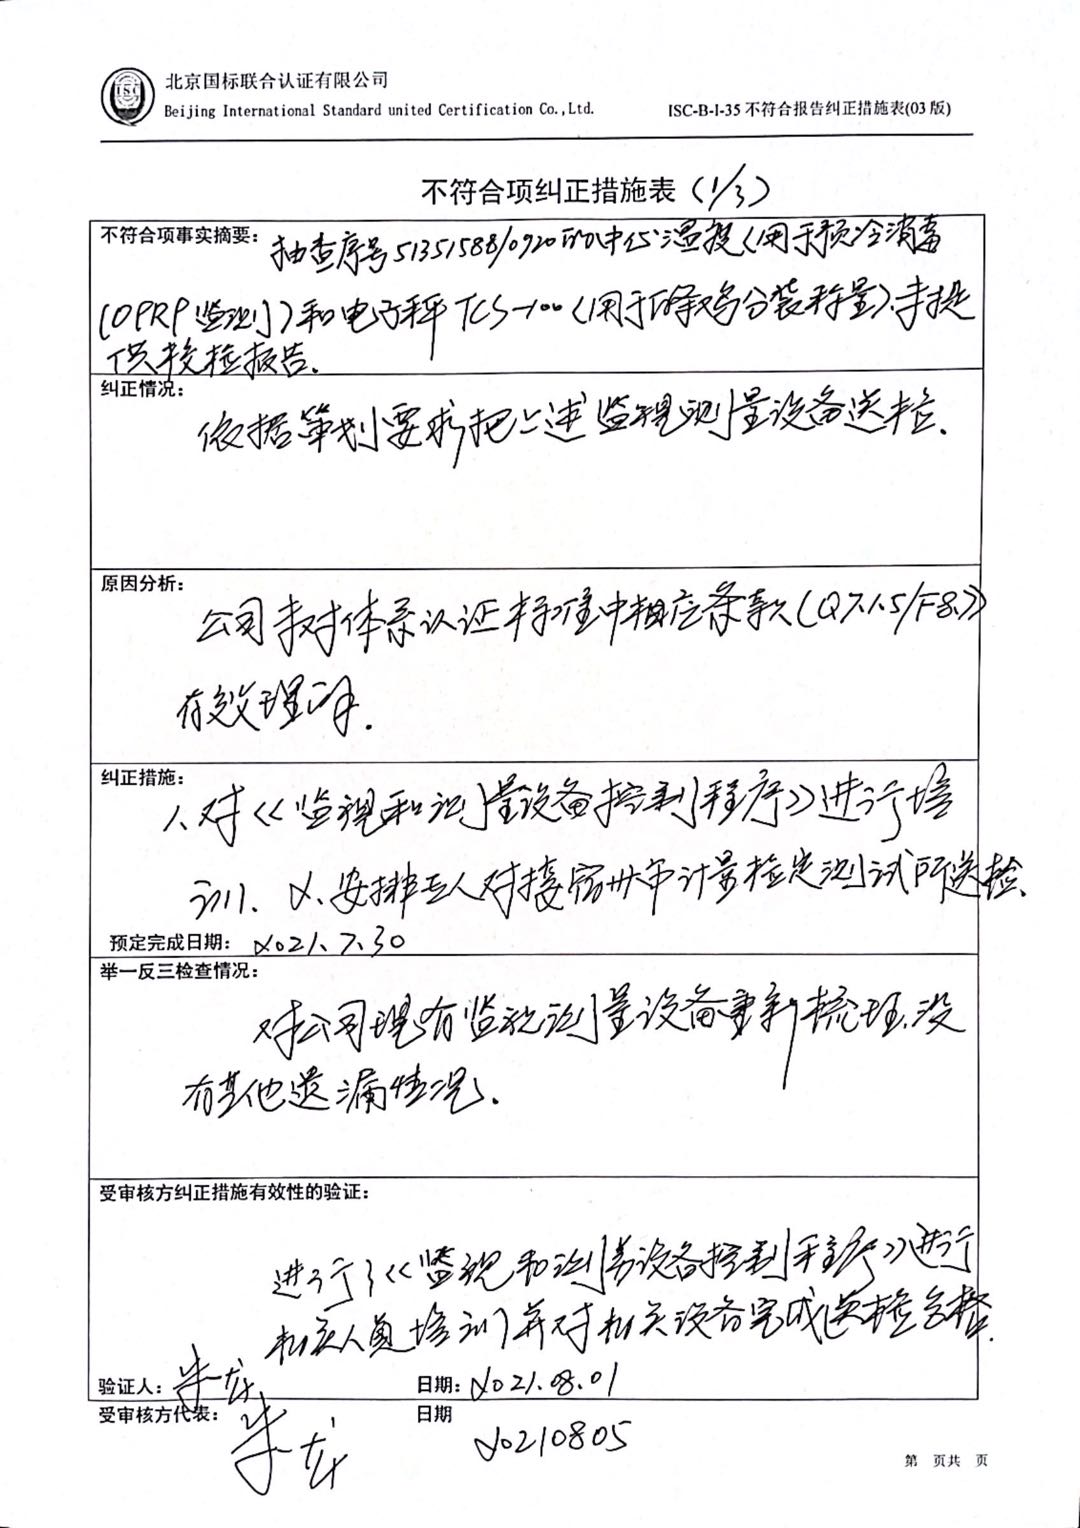 ISC
北京国标联合认证有限公司
Beijing International Standard united Certification Co.,Ltd.
ISC-B-I-35 不符合报告纠正措施表(03 版)
不符合项纠正措施表 (1/3)
不符合项事实摘要: 抽查序号51351588/0920的中心温投(用于预冷消毒
(OPRP监测)和电子秤TCS-100(用于分装称量),未提
供校检报告.
纠正情况:
依据策划要求把上述监视测量设备送检.
原因分析:
公司未对体系认证标准中相应条款(Q7.1.5/F8.7)
有效理解.
纠正措施:
1、对《监视和测量设备控制程序》进行培
训、2、安排专人对接宿州市计量检定测试所送检.
预定完成日期: 2021、7、30
举一反三检查情况:
对公司现有监视测量设备重新梳理,没
有其他遗漏情况.
受审核方纠正措施有效性的验证:
进行了《监视和测量设备控制程序》进行
相关人员培训并对相关设备完成送检合格.
验证人: 朱龙 日期: 2021.08.01
受审核方代表: 朱龙 日期 20210805
第 页共 页